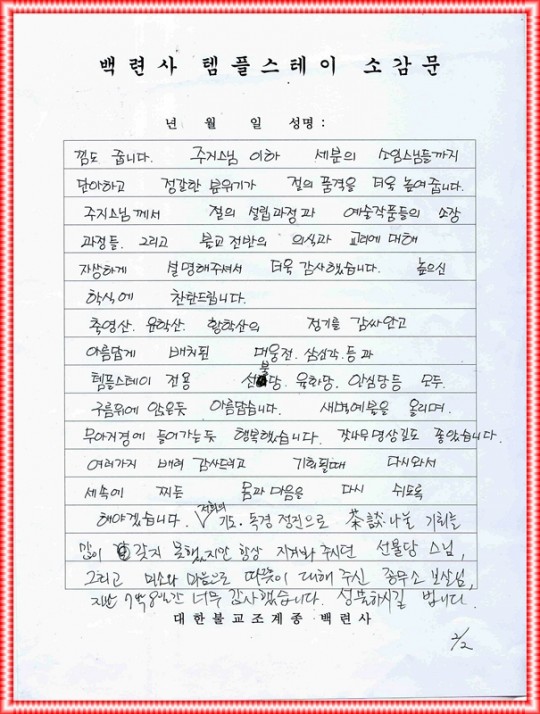 백련사 템플스테이 소감문
년 월 일 성명 :
낌도 줍니다. 주지스님 이하 세분의 소임스님들까지
단아하고 정갈한 분위기가 절의 품격을 더욱 높여줍니다.
주지스님께서 절의 설립과정과 예술작품들의 소장
과정들. 그리고 불교 전반의 의식과 교리에 대해
자상하게 설명해주셔서 더욱 감사했습니다. 높으신
학식에 찬탄드립니다.
축영산. 유학산. 황학산의 정기를 감싸안고
아름답게 배치된 대웅전. 삼성각. 등과
템플스테이 전용 선불당. 육화당. 안심당등 모두.
구름위에 앉은듯 아름답습니다. 새벽예불을 올리며.
무아지경에 들어가는듯 행복했습니다. 잣나무명상길도 좋았습니다.
여러가지 배려 감사드리고 기회될때 다시와서
세속에 찌든 몸과 마음을 다시 쉬도록
해야겠습니다. 저희의 기도. 독경 정진으로 茶談 나눌 기회를
많이 갖지 못했지만 항상 지켜봐 주시던 선불당 스님,
그리고 미소와 마음으로 따뜻이 대해 주신 종무소 보살님,
지난 7박8일간 너무 감사했습니다. 성불하시길 빕니다.
대한불교조계종 백련사
2/2